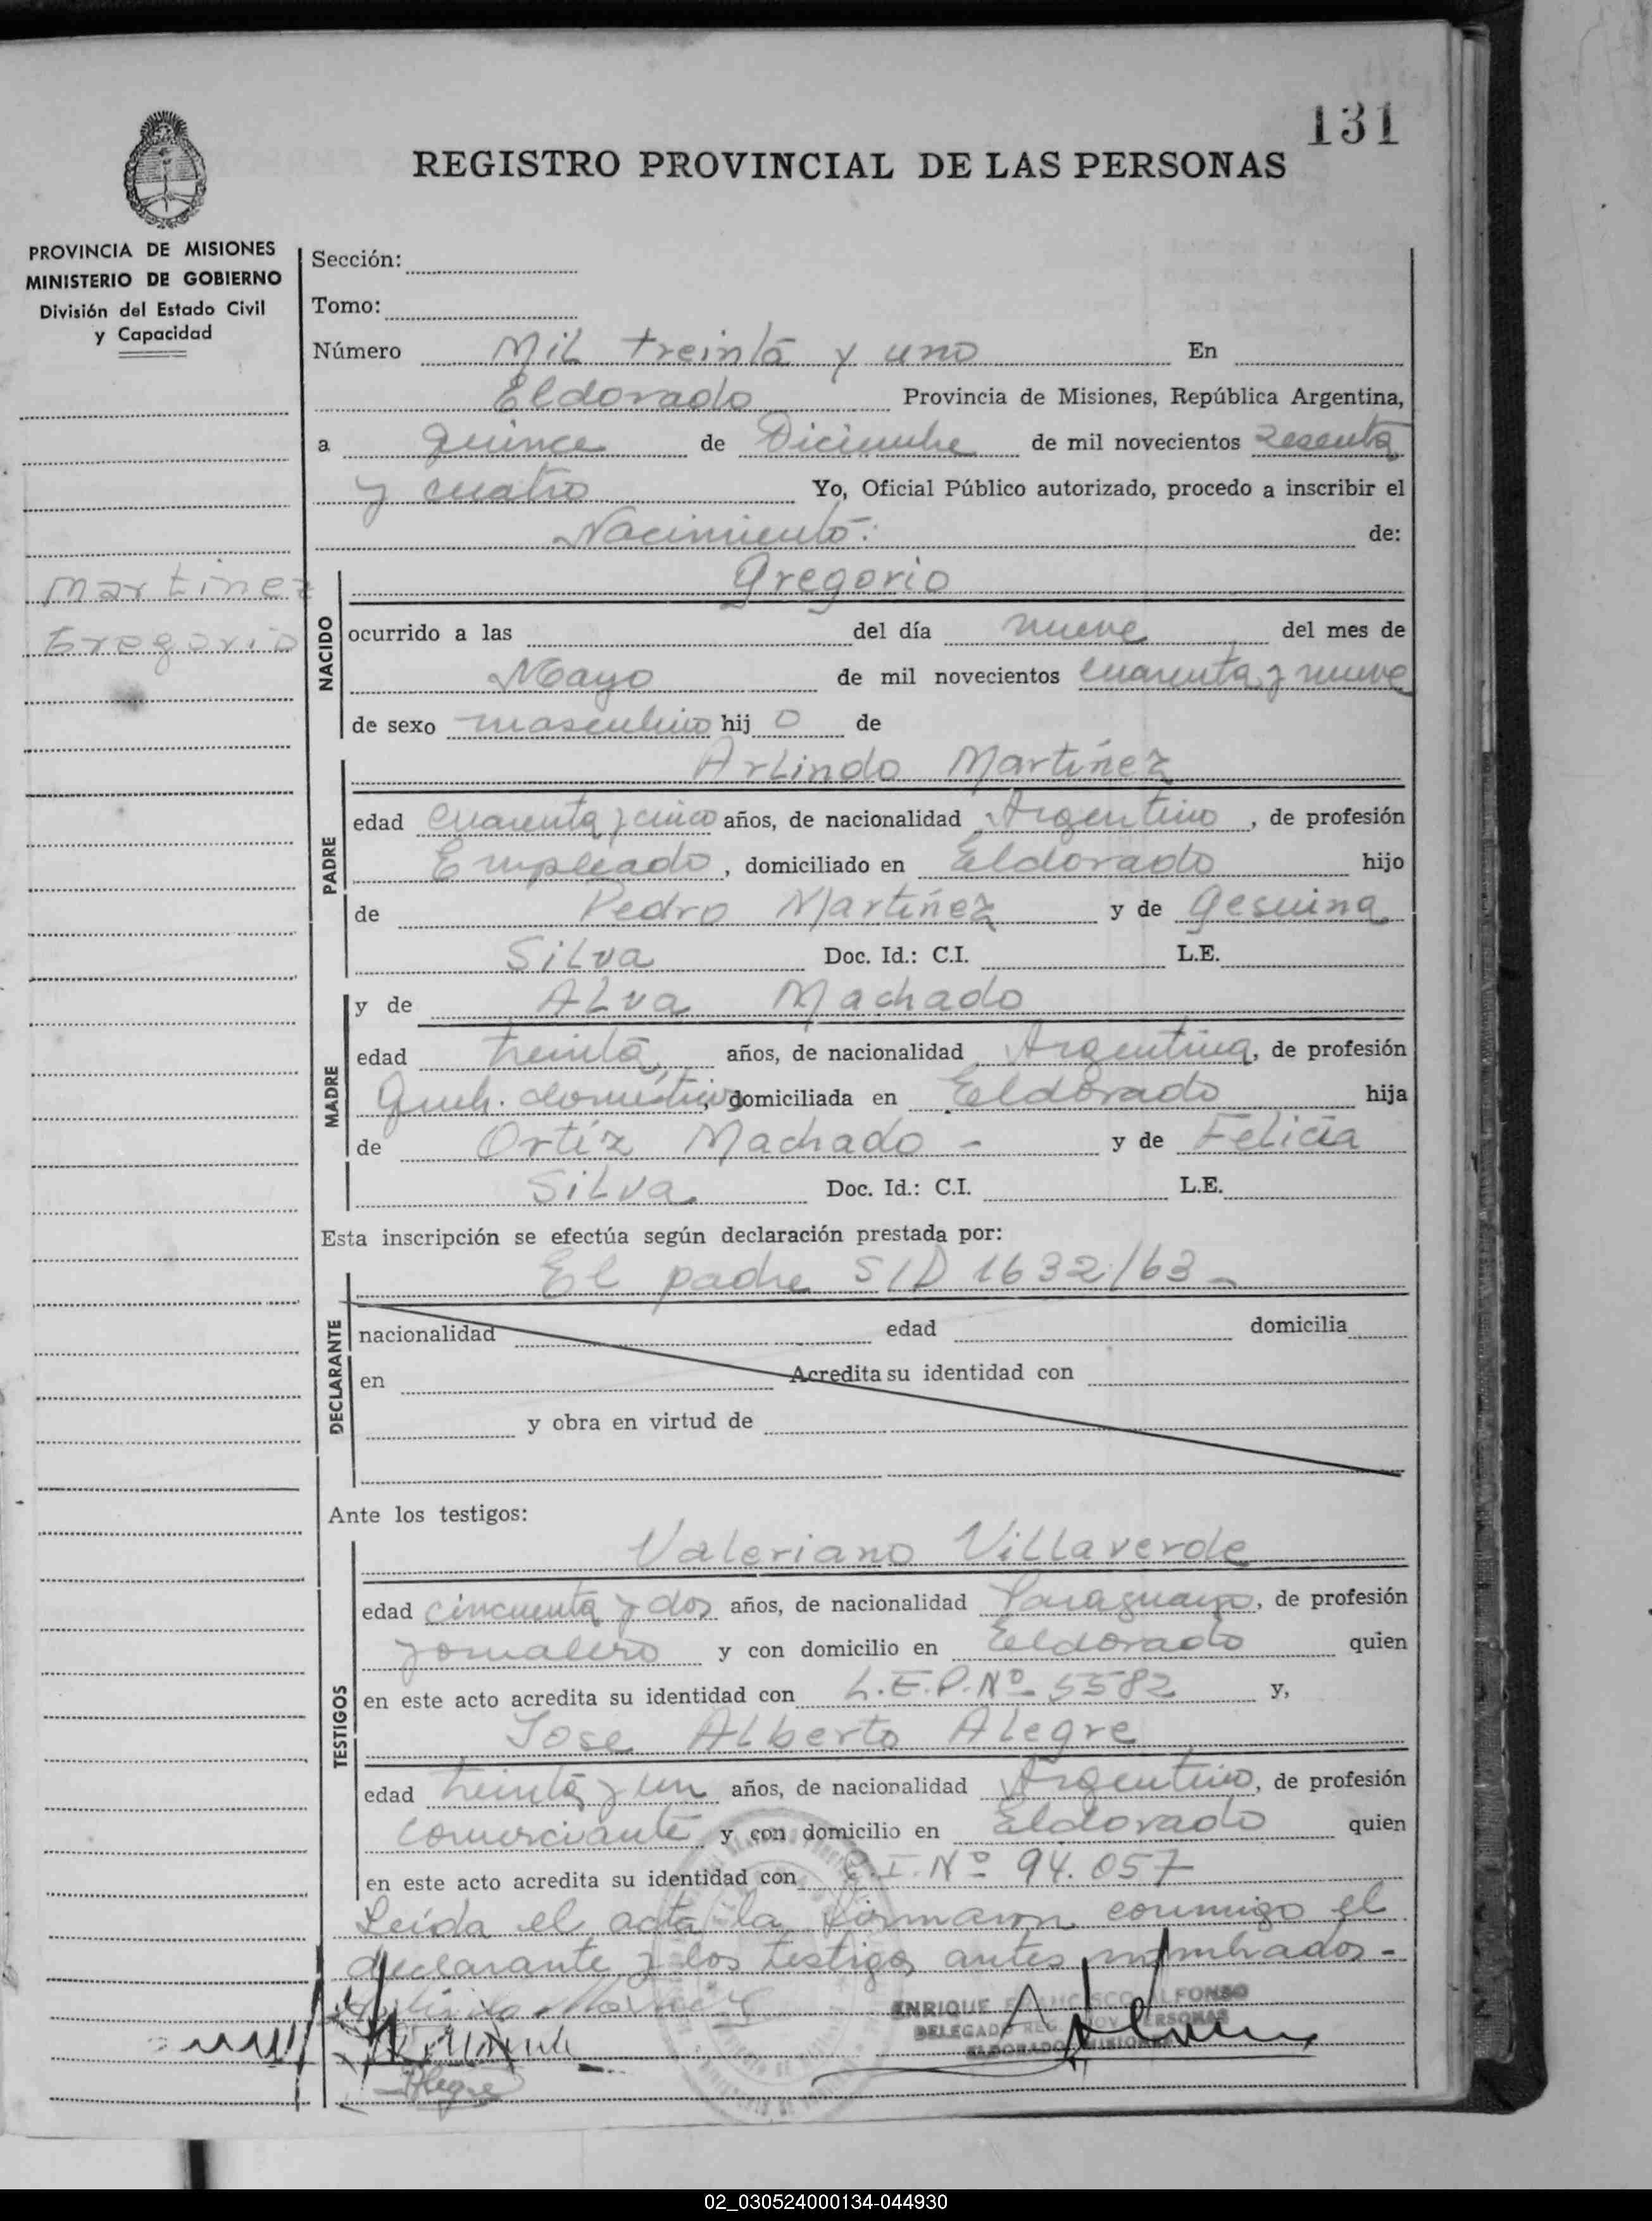 131
REGISTRO PROVINCIAL DE LAS PERSONAS
PROVINCIA DE MISIONES
MINISTERIO DE GOBIERNO
División del Estado Civil
y Capacidad
Martinez
Gregorio
Sección:
Tomo:
Número Mil treinta y uno En
Eldorado Provincia de Misiones, República Argentina,
a quince de Diciembre de mil novecientos sesenta
y cuatro Yo, Oficial Público autorizado, procedo a inscribir el
Nacimiento: de:
NACIDO
Gregorio
ocurrido a las del día nueve del mes de
Mayo de mil novecientos cuarenta y nueve
de sexo masculino hij o de
PADRE
Arlindo Martínez
edad cuarenta y cinco años, de nacionalidad Argentino, de profesión
Empleado, domiciliado en Eldorado hijo
de Pedro Martínez y de Gesuina
Silva Doc. Id.: C.I. L.E.
MADRE
y de Alva Machado
edad treinta, años, de nacionalidad Argentina, de profesión
Queh. domésticos, domiciliada en Eldorado hija
de Ortíz Machado - y de Felicia
Silva Doc. Id.: C.I. L.E.
Esta inscripción se efectúa según declaración prestada por:
DECLARANTE
El padre S/D 1632/63 -
nacionalidad edad domicilia
en Acredita su identidad con
y obra en virtud de
Ante los testigos:
TESTIGOS
Valeriano Villaverde
edad cincuenta y dos años, de nacionalidad Paraguayo, de profesión
jornalero y con domicilio en Eldorado quien
en este acto acredita su identidad con L.E.P. Nº 5582 y,
Jose Alberto Alegre
edad treinta y un años, de nacionalidad Argentino, de profesión
Comerciante y con domicilio en Eldorado quien
en este acto acredita su identidad con C.I. Nº 94.057
Leída el acta la firmaron conmigo el
declarante y los testigos antes nombrados.-
ENRIQUE FRANCISCO ALFONSO
DELEGADO REG. PROV. PERSONAS
ELDORADO MISIONES
Alegre
02_030524000134-044930